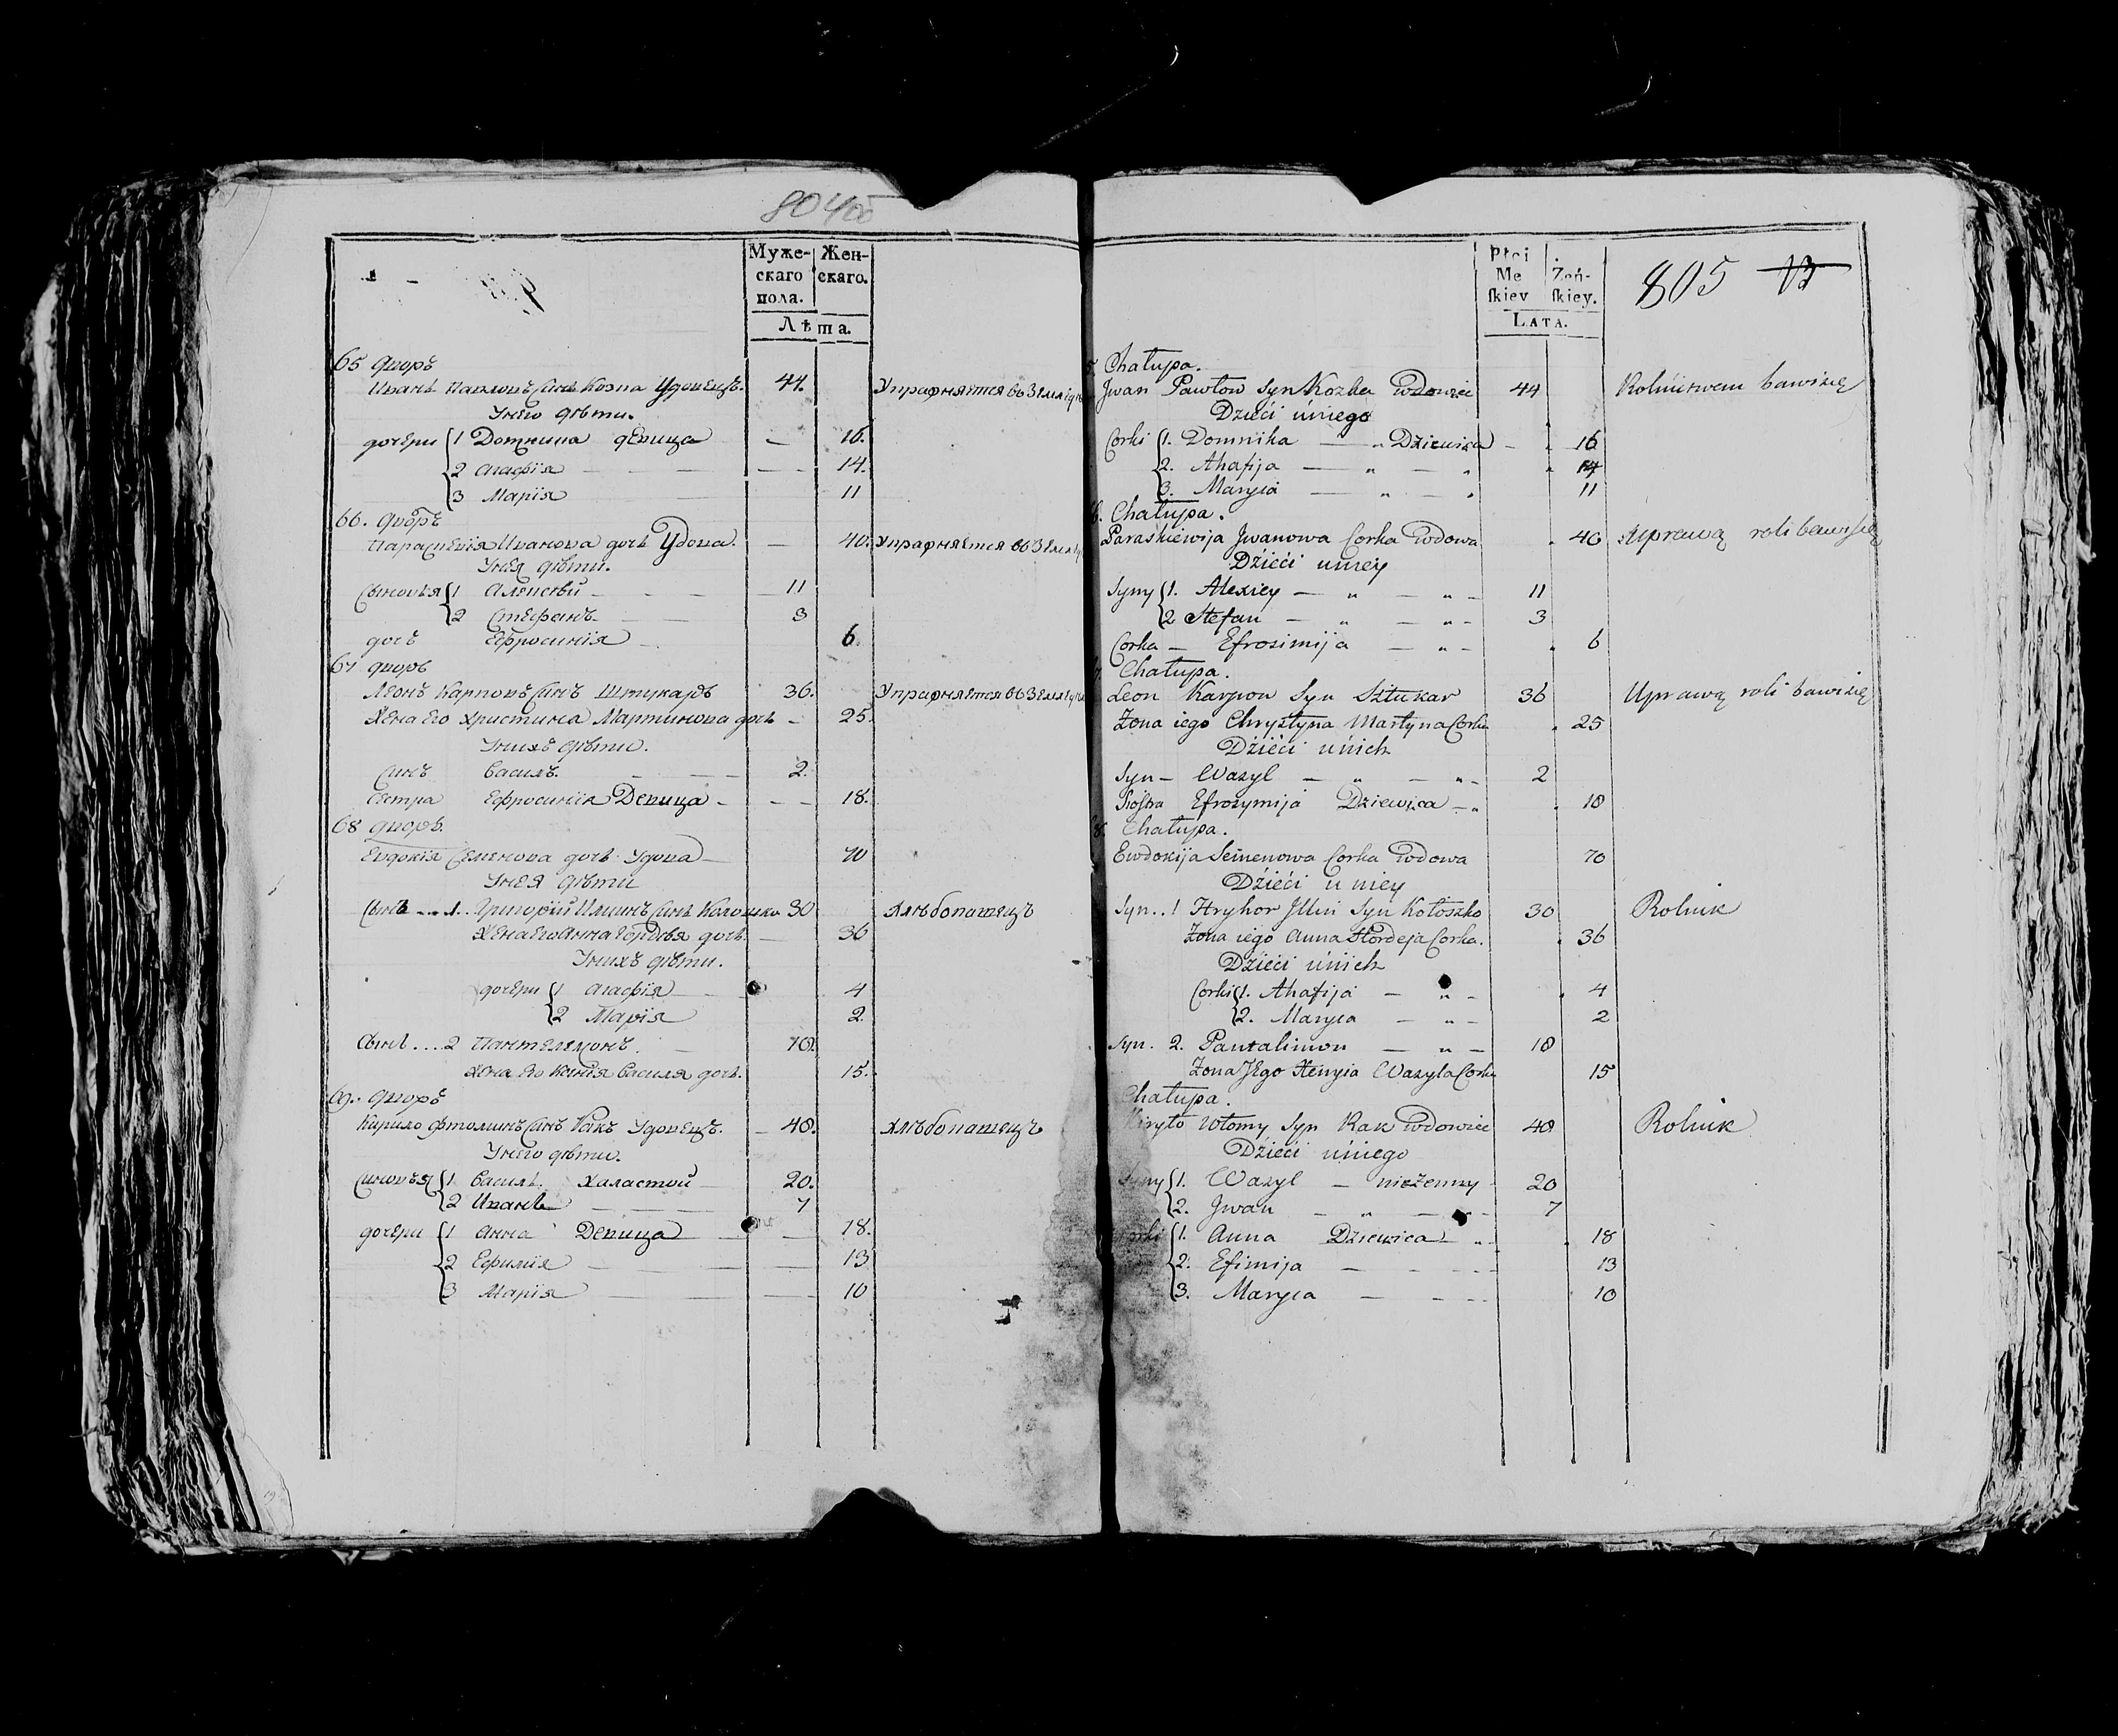 804об
Муже-
скаго
пола.
Жен-
скаго.
Лѣта.
65 дворъ
Иванъ Павловъ синъ Козка Удовецъ. 44. Упражняется въ Земле
Унего дѣти.
дочери 1 Домникиа девица — 16.
2 Агафія — 14.
3 Марія 11
66. дворъ
Параскевія Иванова дочь Удова. — 40. Упражняется въ Земле
Унея дѣти.
Сыновья 1 Алексѣй — 11
2 Стефанъ — 3
дочь Ефросинія — 6.
67 дворъ
Леонъ Карповъ синъ Штукаръ 36. Упражняется въ Земле
Жена его Христина Мартинова дочь — 25.
Унихъ дѣти.
Синъ Василъ. — 2.
Сестра Ефросинія Девица — 18.
68 дворъ.
Евдокія Семенова дочь Удова — 70
Унея дѣти
Сынъ 1. Григорій Илинъ синъ Колошко 30 хлѣбопашецъ
Жена его Анна Гордѣя дочь. — 36
Унихъ дѣти.
дочери 1 Агафія — 4
2 Марія 2.
Сынъ ... 2 Пантелемонъ. — 18.
Жена его Василя дочь. 15.
69. дворъ
Кирило синъ Ракъ Удовецъ. — 48. хлѣбопашецъ
Унего дѣти.
Синовья 1. Василъ. Халастой — 20.
2 Иванъ — 7
дочери 1 Анна Девица — 18.
2 Ефимія — 13
3 Марія — 10
Płci
Me
ſkiey
Żeń-
ſkiey.
LATA.
805 13
Chałupa.
Jwan Pawłow Syn Kozka Wdowiec 44 Rolnictwem bawi się
Dzieci u niego
Corki 1. Domnika — „ Dziewica — 16
2. Ahafija — „ — „ 14
3. Maryia — „ — „ 11
6. Chałupa.
Paraskiewija Jwanowa Corka Wdowa 40 Uprawą roli bawi się
Dzieci u niey
Syny 1. Alexiey — „ — „ — 11
2 Stefan — „ — „ — 3
Corka — Efrosimija — „ — 6
7. Chałupa.
Leon Karpow Syn Sztukar 36 Uprawą roli bawi się
Żona iego Chrystyna Martyna Corka 25
Dzieci u nich
Syn — Wasyl — „ — „ — 2
Siostra Efrozymija Dziewica — „ 18
8. Chałupa.
Ewdokija Semenowa Corka Wdowa 70
Dzieci u niey
Syn .. 1 Hryhor Jllin Syn Kołoszko 30 Rolnik
Żona iego Anna Hordeja Corka. 36
Dzieci u nich
Corki 1. Ahafija — „ — 4
2. Maryia — „ — 2
Syn. 2. Pantalimon — „ — 18
Żona Jego Xenyia Wasyla Corka 15
Chałupa.
Kiryło Syn Rak Wdowiec 48 Rolnik
Dzieci u niego
Syny 1. Wasyl — nieżenny 20
2. Jwan — „ — 7
Corki 1. Anna Dziewica — „ 18
2. Efimija — 13
3. Maryia — 10